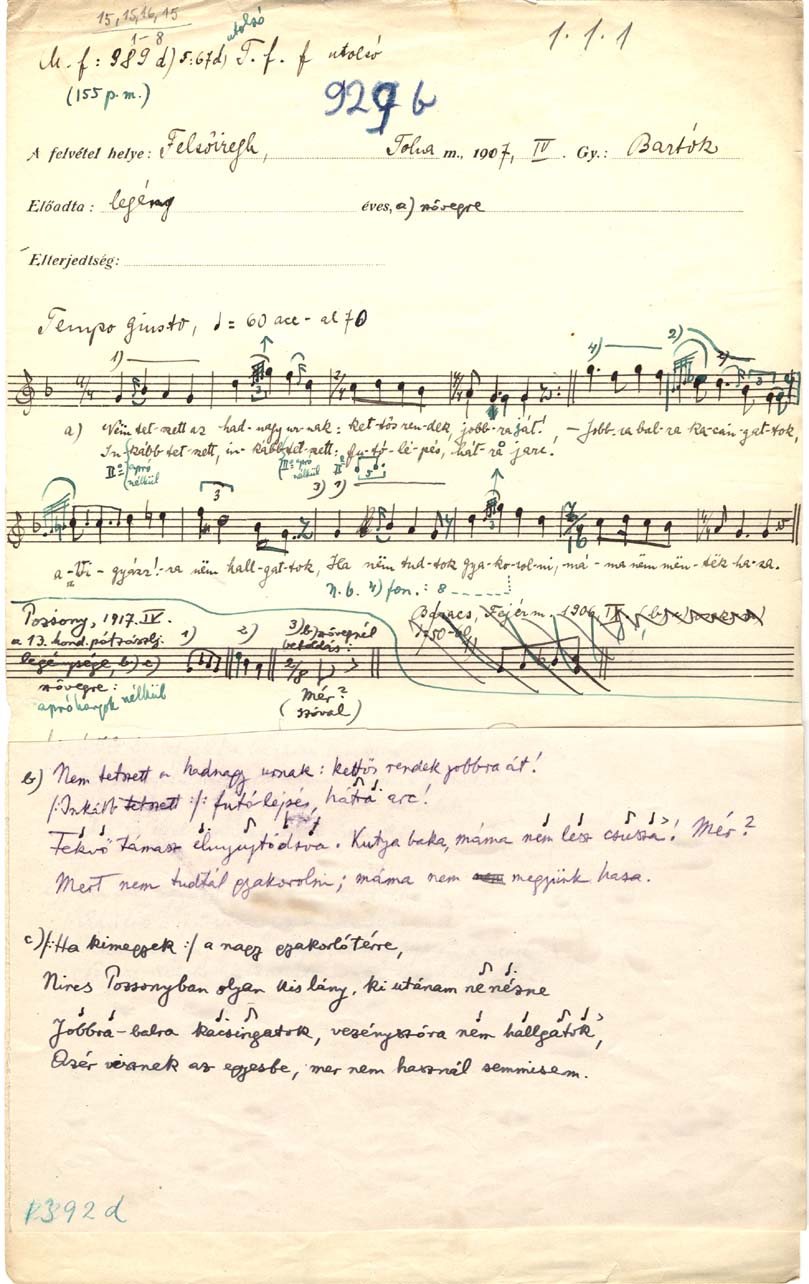 15, 15, 16, 15
1-8
utolsó
M. f: 989 d) 5:67d, T. f. f utolsó
1. 1. 1
(155 p. m.)
929 b
A felvétel helye: Felsőiregh, Tolna m., 1907, IV. Gy.: Bartók
Előadta: legény éves, a) szövegre
Elterjedtség:
Tempo giusto, = 60 acc - al 70
1) 4) 2)
4/4 2/4 4/4
a) Nëm tet-szett az had-nagy ur-nak: ket-tős ren-dek, jobb-ra ját! - Jobb-ra bal-ra ka-csin-gat-tok,
In-kább tet-szett, in-kább tet-szett: fu-tó-lé-pés, hát-ra jarc!
II° apró nélkül II° apró nélkül II° 5
3 3) 1) 7/16
a Vi-gyázz!-ra nëm hall-gat-tok, Ha nëm tud-tok gya-ko-rol-ni, má-ma nëm mën-tëk ha-za.
n. b. 4) fon.: 8
Pozsony, 1917. IV. Baracs, Fejérm. 1906,
a 13. hond. pótzászlj. 1) 2) 3) b) szövegnél
legénysége, b) c) betoldás:
szövegre: 2/8 Mér?
apróhangok nélkül (szóval)
b) Nem tetszett a hadnagy urnak: kettős rendek jobbra át!
/:Inkább tetszett :/: futó-lépés, hátra arc!
Fekvő támasz elnyujtódzva. Kutya baka, máma nem lesz csusza! Mér?
Mert nem tudtál gyakorolni; máma nem megyünk haza.
c) /:Ha kimegyek :/ a nagy gyakorlótérre,
Nincs Pozsonyban olyan kis lány, ki utánam ne nézne
Jobbra-balra kacsingatok, vezényszóra nem hallgatok,
Azér visznek az egyesbe, mer nem használ semmisem.
R392 d